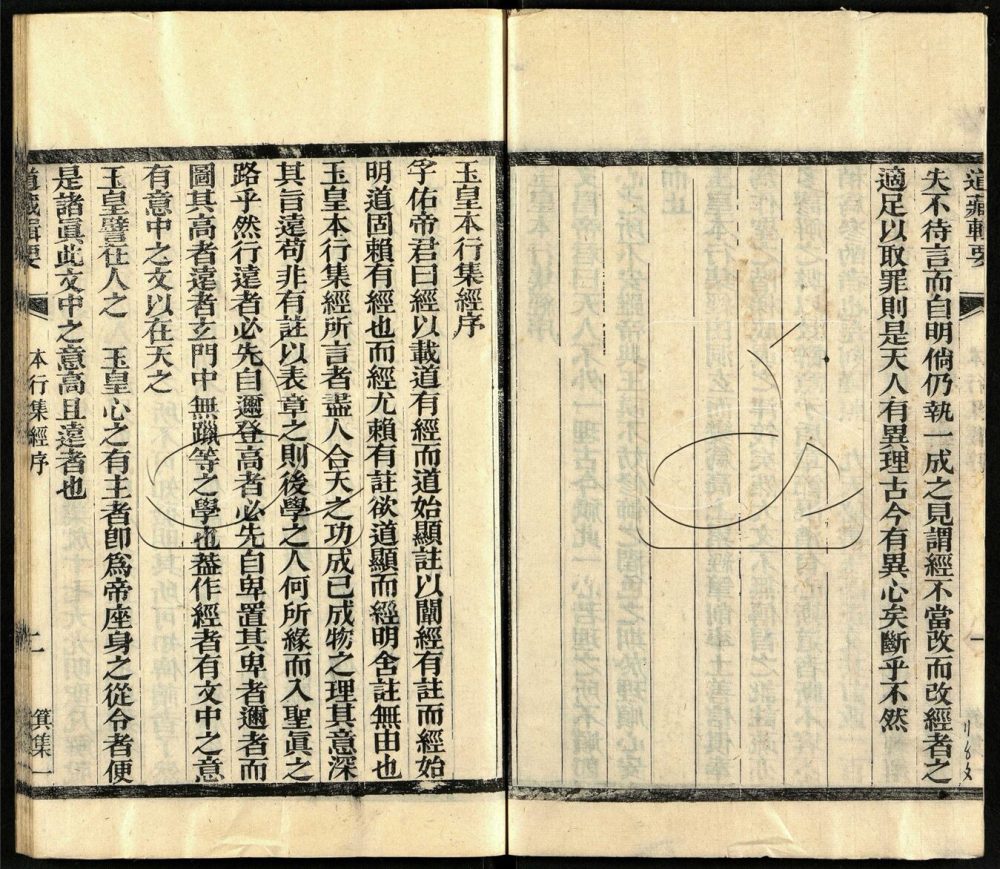 道藏輯要
失不待言而自明倘仍執一成之見謂經不當改而改經者之
適足以取罪則是天人有異理古今有異心矣斷乎不然
玉皇本行集經序
孚佑帝君曰經以載道有經而道始顯註以闡經有註而經始
明道固賴有經也而經尤賴有註欲道顯而經明舍註無由也
玉皇本行集經所言者盡人合天之功成已成物之理其意深
其言達苟非有註以表章之則後學之人何所緣而入聖眞之
路乎然行遠者必先自邇登高者必先自卑置其卑者邇者而
圖其高者遠者玄門中無躐等之學也葢作經者有文中之意
有意中之文以在天之
玉皇譬在人之 玉皇心之有主者卽爲帝座身之從令者便
是諸眞此文中之意高且遠者也
道藏輯要 本行集經序 七 箕集一